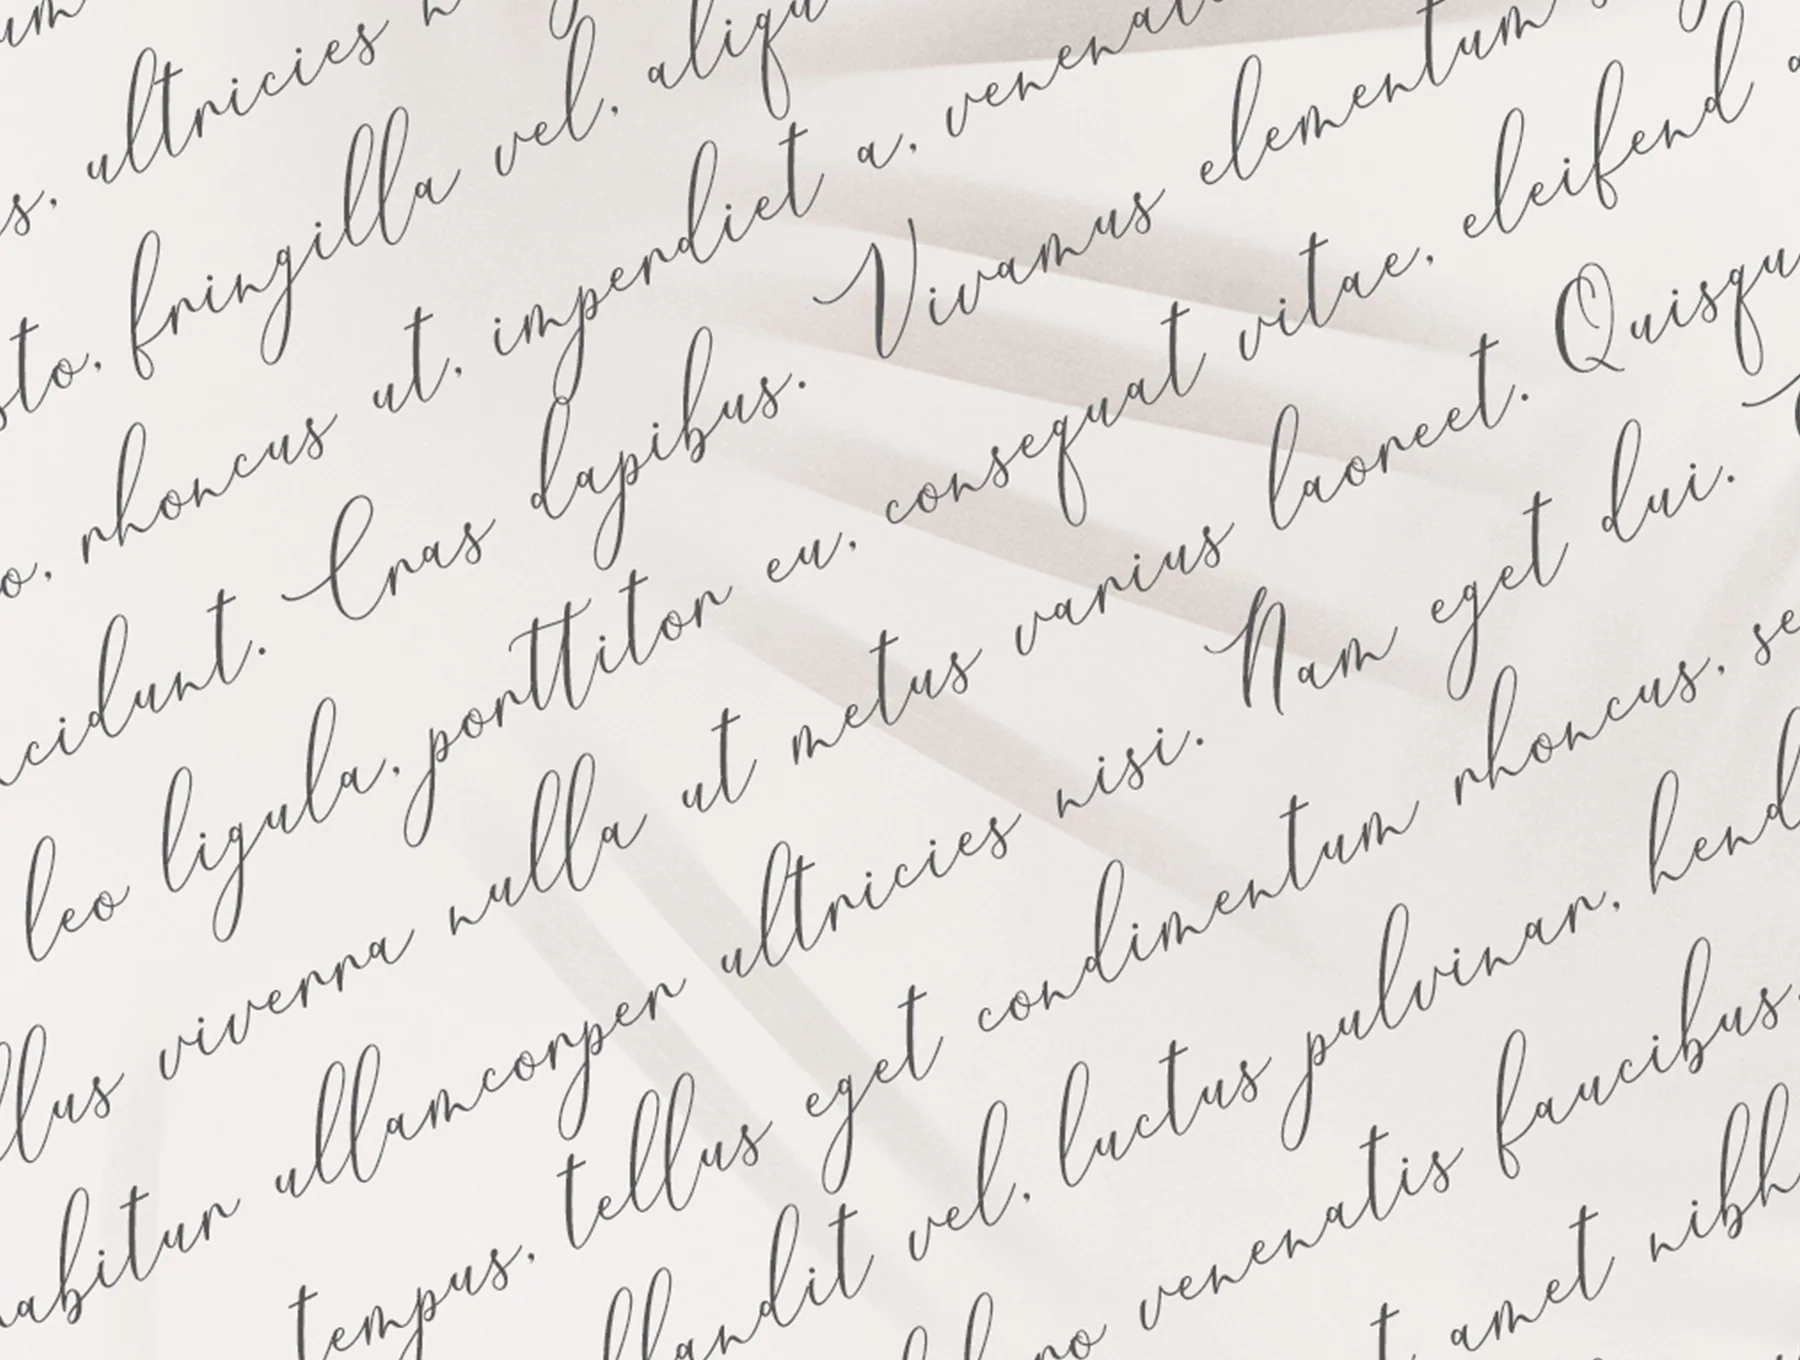 um
s, ultricies n
sto, fringilla vel, aliqu
o, rhoncus ut, imperdiet a, venenat
cidunt. Cras dapibus. Vivamus elementum s
leo ligula, porttitor eu, consequat vitae, eleifend a
llus viverra nulla ut metus varius laoreet. Quisqu
abitur ullamcorper ultricies nisi. Nam eget dui.
tempus, tellus eget condimentum rhoncus, se
landit vel, luctus pulvinar, hend
venenatis faucibus.
t amet nibh